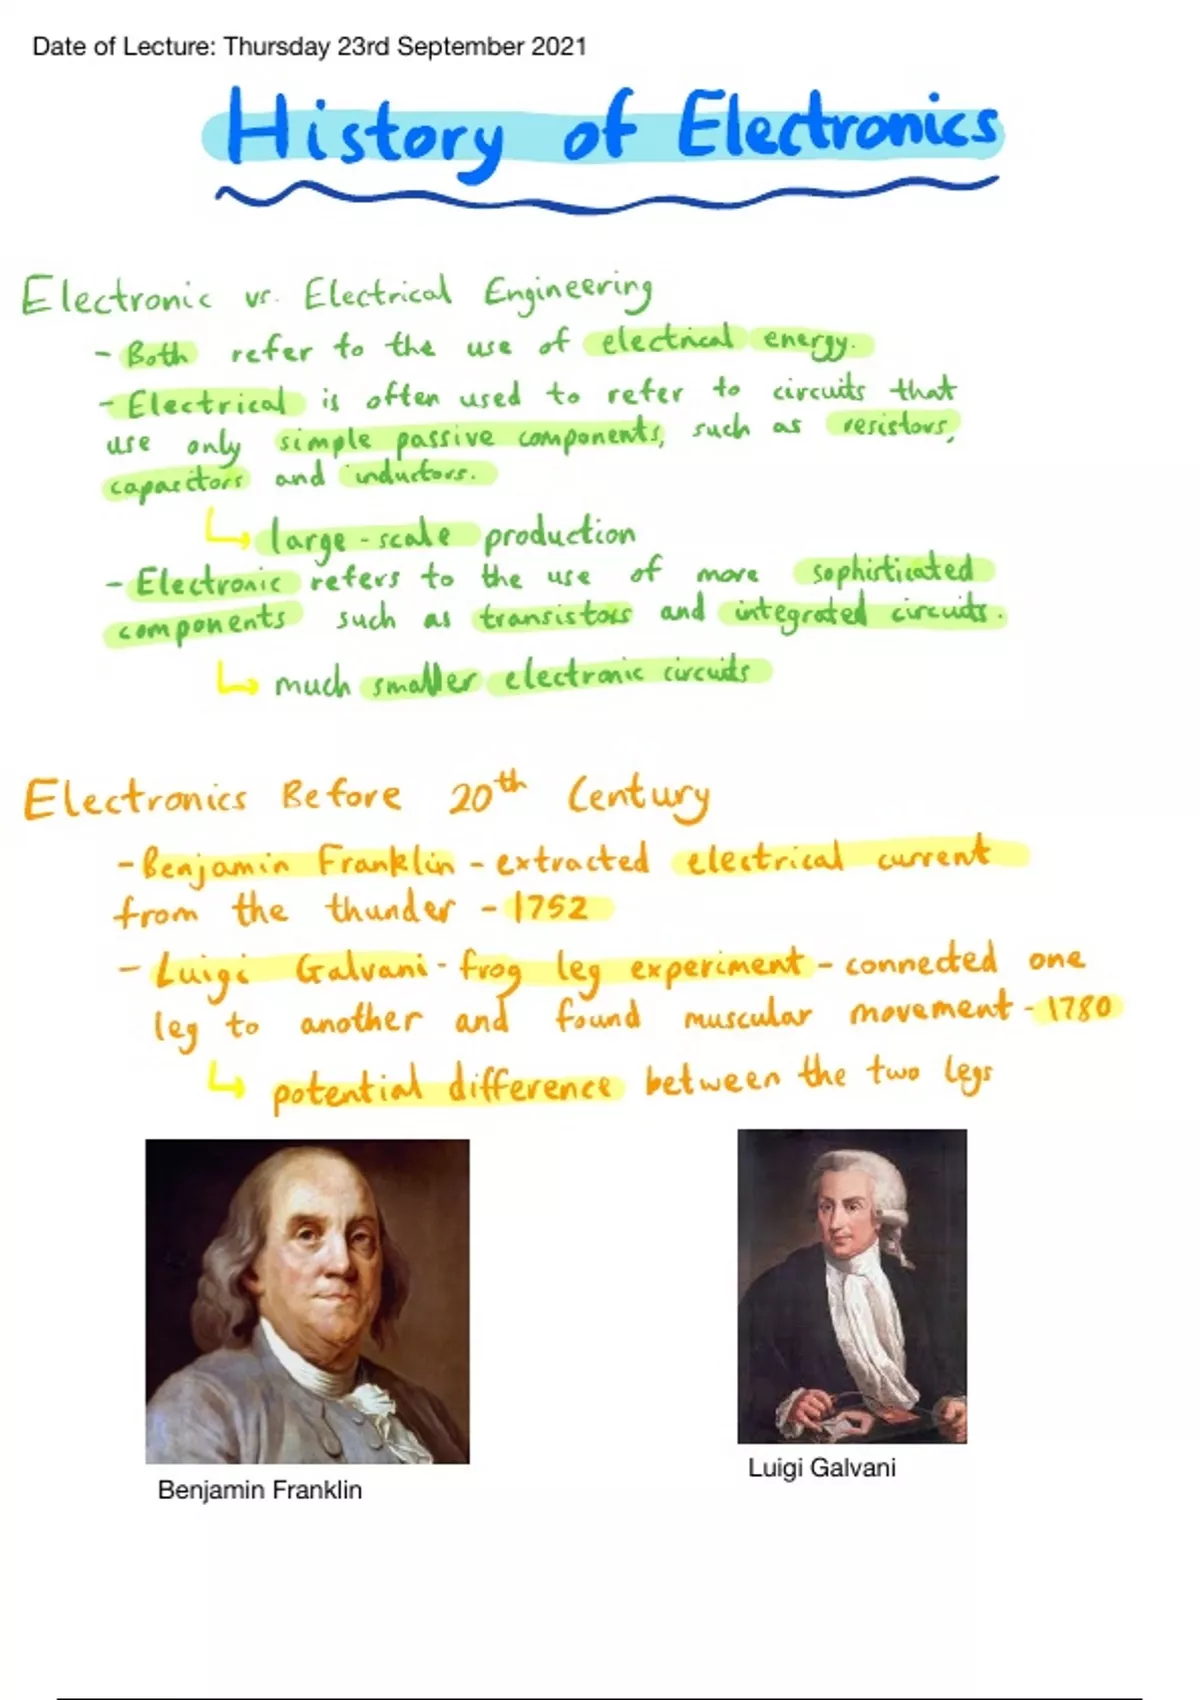 Date of Lecture: Thursday 23rd September 2021
History of Electronics
Electronic vs. Electrical Engineering
- Both refer to the use of electrical energy.
- Electrical is often used to refer to circuits that
use only simple passive components, such as resistors,
capacitors and inductors.
large-scale production
- Electronic refers to the use of more sophisticated
components such as transistors and integrated circuits.
much smaller electronic circuits
Electronics Before 20th Century
- Benjamin Franklin - extracted electrical current
from the thunder - 1752
- Luigi Galvani - frog leg experiment - connected one
leg to another and found muscular movement - 1780
potential difference between the two legs
Benjamin Franklin
Luigi Galvani